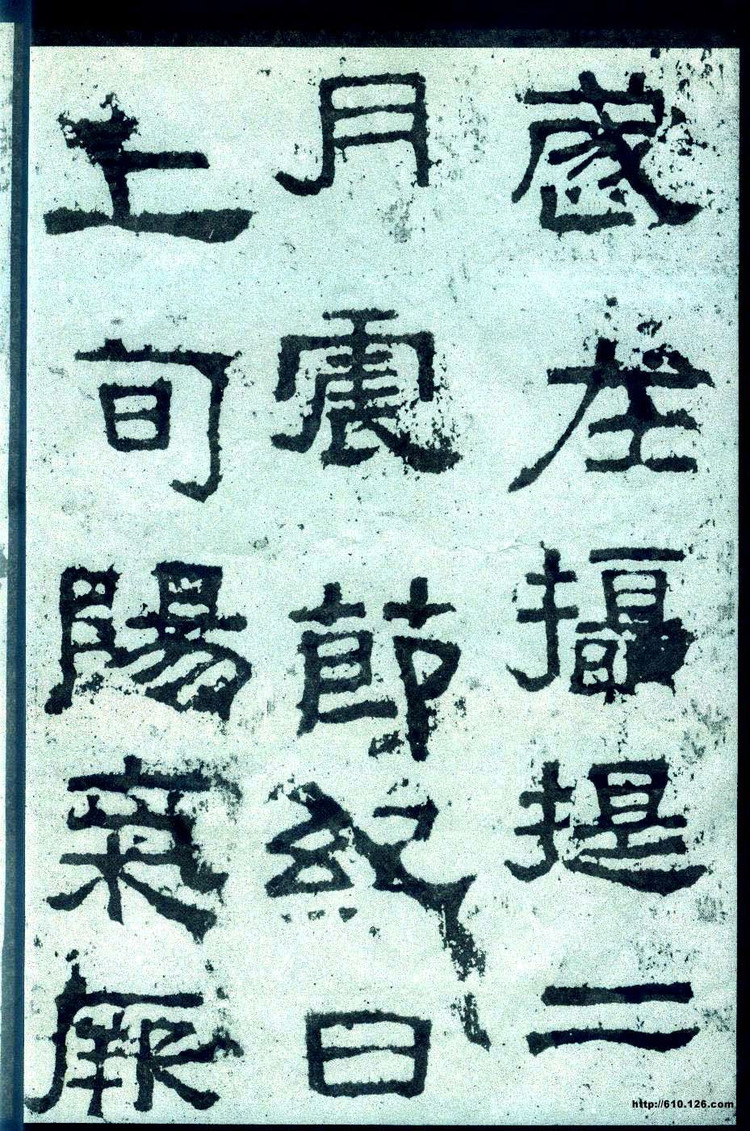 歲在攝提二
月震節紀日
上旬陽氣厥
http://610.126.com